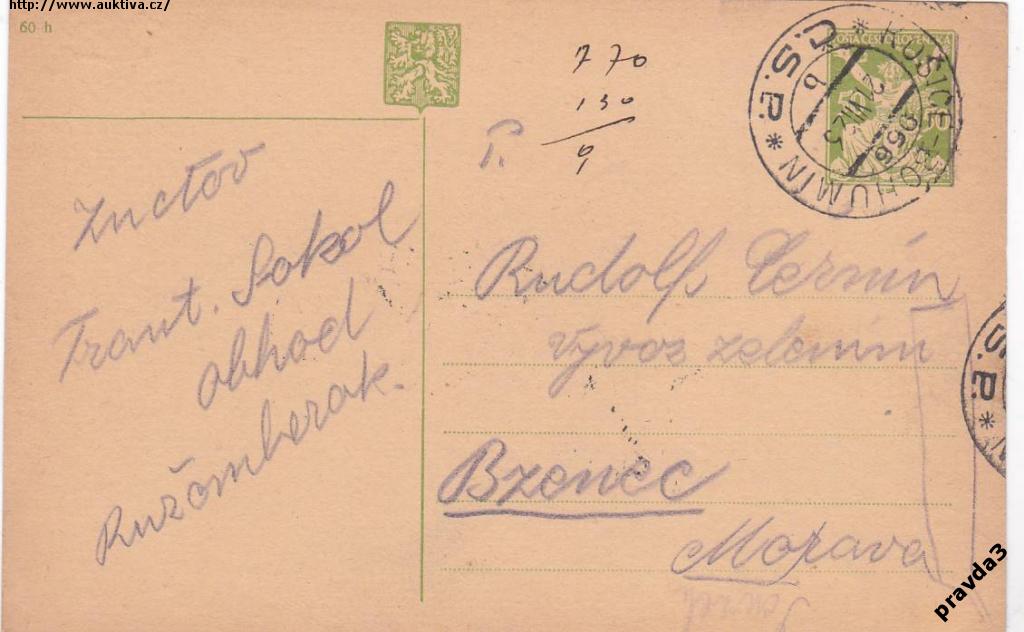 http://www.auktiva.cz/
60 h
770
130
9
P.
POŠTA ČESKOSLOVENSKÁ
* KOŠICE-BOHUMÍN * Č.S.P.
956
b
Frant. Sokol
obhod
Ružomberok.
Rudolf Černín
Vývoz zelenin
Bzenec
Morava
S.P. *
pravda3